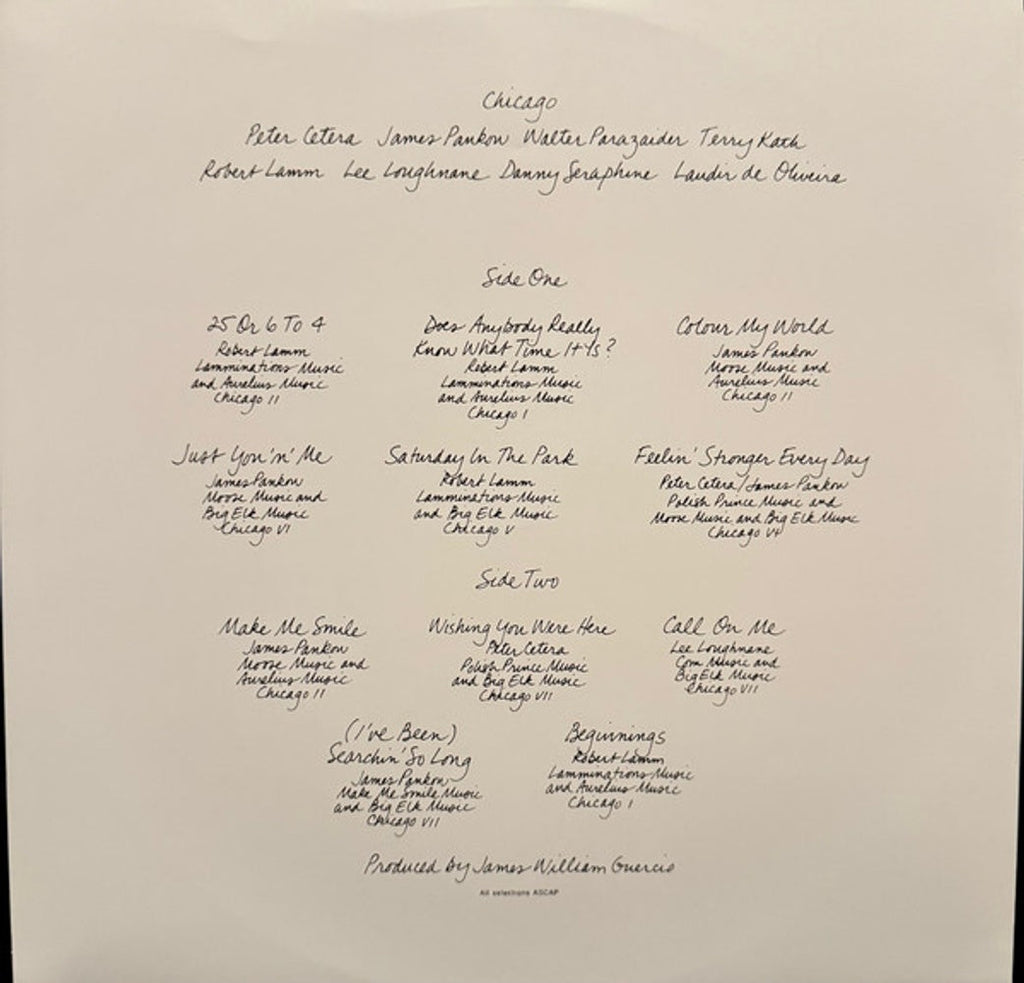 Chicago
Peter Cetera James Pankow Walter Parazaider Terry Kath
Robert Lamm Lee Loughnane Danny Seraphine Laudir de Oliveira
Side One
25 Or 6 To 4
Robert Lamm
Lamminations Music
and Aurelius Music
Chicago II
Does Anybody Really
Know What Time It Is?
Robert Lamm
Lamminations Music
and Aurelius Music
Chicago I
Colour My World
James Pankow
Moose Music and
Aurelius Music
Chicago II
Just You 'n' Me
James Pankow
Moose Music and
Big Elk Music
Chicago VI
Saturday In The Park
Robert Lamm
Lamminations Music
and Big Elk Music
Chicago V
Feelin' Stronger Every Day
Peter Cetera/James Pankow
Polish Prince Music and
Moose Music and Big Elk Music
Chicago VI
Side Two
Make Me Smile
James Pankow
Moose Music and
Aurelius Music
Chicago II
Wishing You Were Here
Peter Cetera
Polish Prince Music
and Big Elk Music
Chicago VII
Call On Me
Lee Loughnane
Com Music and
Big Elk Music
Chicago VII
(I've Been)
Searchin' So Long
James Pankow
Make Me Smile Music
and Big Elk Music
Chicago VII
Beginnings
Robert Lamm
Lamminations Music
and Aurelius Music
Chicago I
Produced by James William Guercio
All selections ASCAP